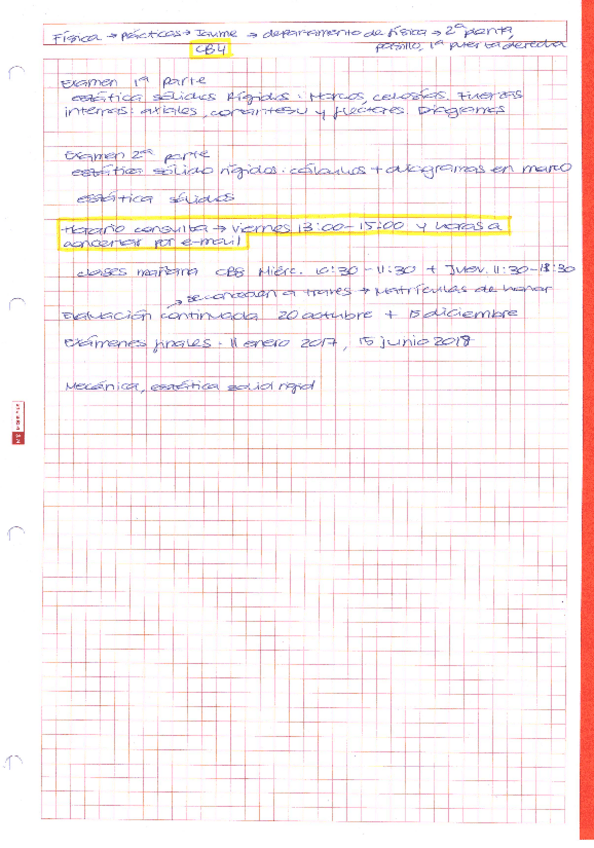 Física → prácticas → Jaume → departamento de física → 2ª planta,
CB4 pasillo, 1ª puerta derecha
Examen 1ª parte
estática sólidos rígidos. Marcos, celosías, Fuerzas
internas: axiales, cortantes y flectores. Diagramas
Examen 2ª parte
estática sólido rígidos. cálculos + diagramas en marco
estática sólidos
Horario consulta → viernes 13:00-15:00 y horas a
concertar por e-mail
clases mañana CBB Miérc. 10:30-11:30 + Juev. 11:30-13:30
→ se conceden a través → Matrículas de honor
Evaluación continuada 20 octubre + 15 diciembre
Exámenes finales. 11 enero 2017, 15 junio 2018
Mecánica, estática solid rigid